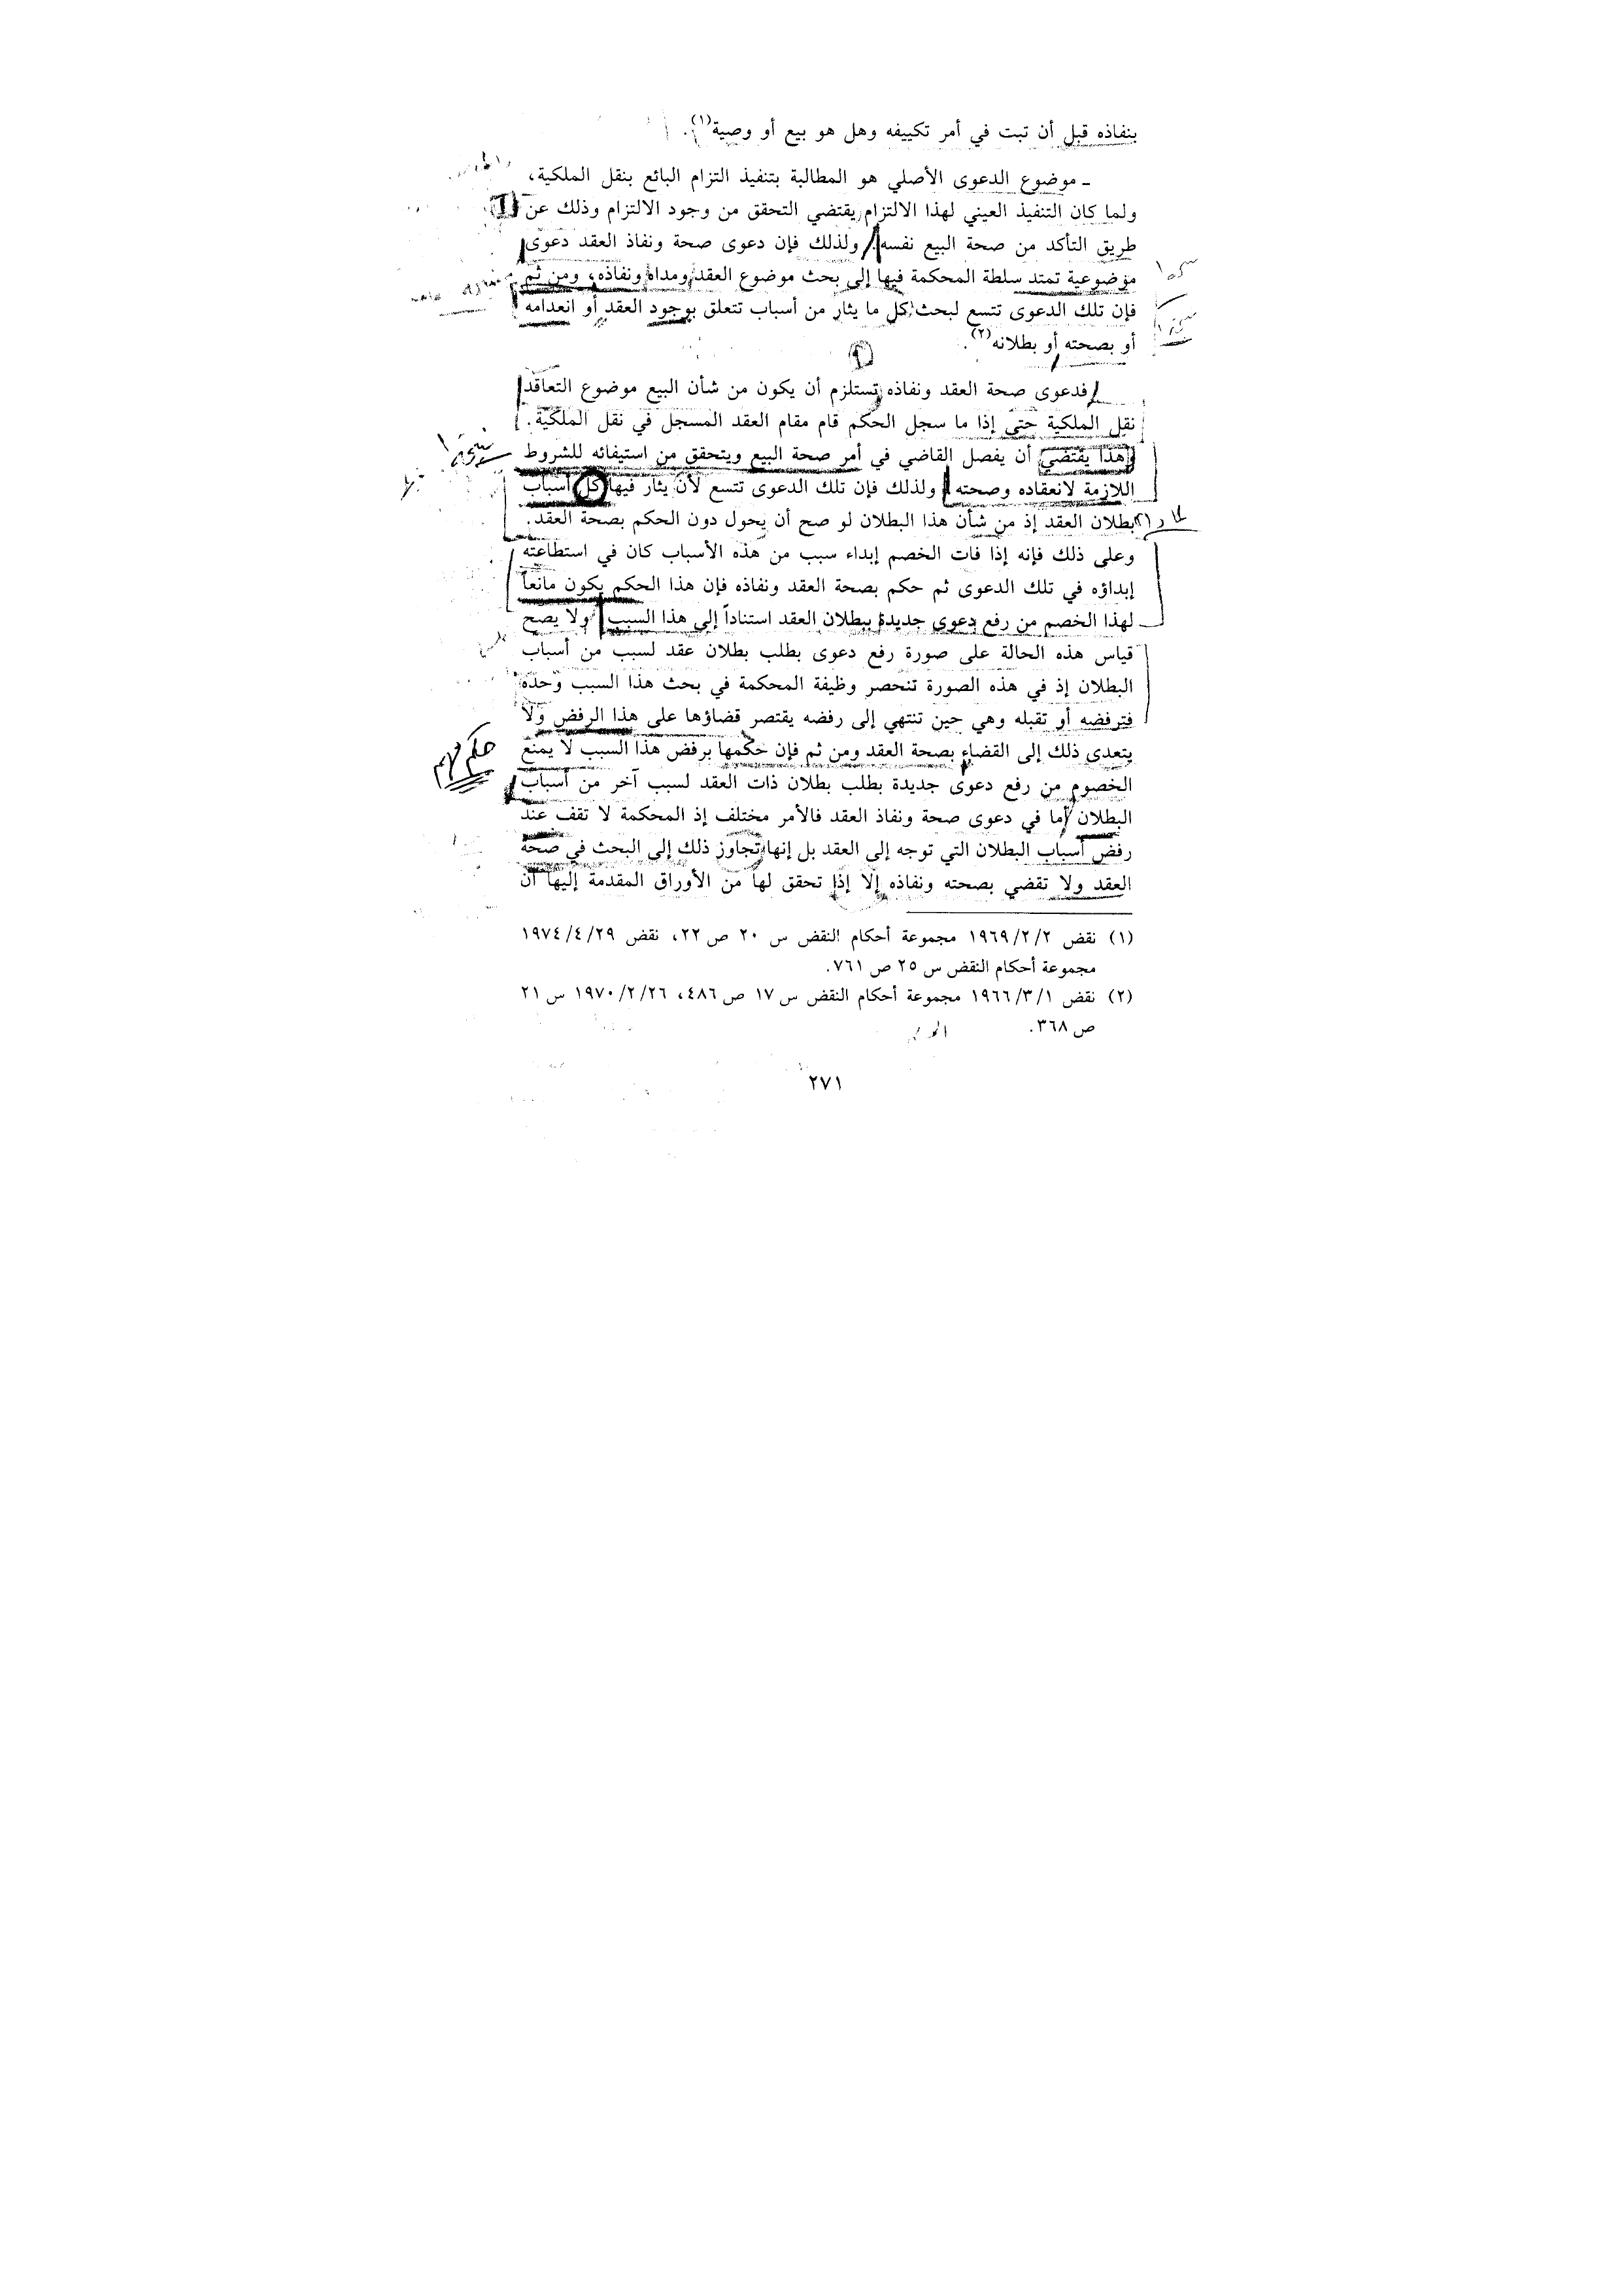 بنفاذه قبل أن تبت في أمر تكييفه وهل هو بيع أو وصية(١).
ـ موضوع الدعوى الأصلي هو المطالبة بتنفيذ التزام البائع بنقل الملكية،
ولما كان التنفيذ العيني لهذا الالتزام يقتضي التحقق من وجود الالتزام وذلك عن
طريق التأكد من صحة البيع نفسه. ولذلك فإن دعوى صحة ونفاذ العقد دعوى
موضوعية تمتد سلطة المحكمة فيها إلى بحث موضوع العقد ومداه ونفاذه، ومن ثم
فإن تلك الدعوى تتسع لبحث كل ما يثار من أسباب تتعلق بوجود العقد أو انعدامه
أو بصحته أو بطلانه(٢).
فدعوى صحة العقد ونفاذه تستلزم أن يكون من شأن البيع موضوع التعاقد
نقل الملكية حتى إذا ما سجل الحكم قام مقام العقد المسجل في نقل الملكية.
وهذا يقتضي أن يفصل القاضي في أمر صحة البيع ويتحقق من استيفائه للشروط
اللازمة لانعقاده وصحته ولذلك فإن تلك الدعوى تتسع لأن يثار فيها كل أسباب
بطلان العقد إذ من شأن هذا البطلان لو صح أن يحول دون الحكم بصحة العقد.
وعلى ذلك فإنه إذا فات الخصم إبداء سبب من هذه الأسباب كان في استطاعته
إبداؤه في تلك الدعوى ثم حكم بصحة العقد ونفاذه فإن هذا الحكم يكون مانعاً
لهذا الخصم من رفع دعوى جديدة ببطلان العقد استناداً إلى هذا السبب ولا يصح
قياس هذه الحالة على صورة رفع دعوى بطلب بطلان عقد لسبب من أسباب
البطلان إذ في هذه الصورة تنحصر وظيفة المحكمة في بحث هذا السبب وحده
فترفضه أو تقبله وهي حين تنتهي إلى رفضه يقتصر قضاؤها على هذا الرفض ولا
يتعدى ذلك إلى القضاء بصحة العقد ومن ثم فإن حكمها برفض هذا السبب لا يمنع
الخصوم من رفع دعوى جديدة بطلب بطلان ذات العقد لسبب آخر من أسباب
البطلان أما في دعوى صحة ونفاذ العقد فالأمر مختلف إذ المحكمة لا تقف عند
رفض أسباب البطلان التي توجه إلى العقد بل إنها تجاوز ذلك إلى البحث في صحة
العقد ولا تقضي بصحته ونفاذه إلا إذا تحقق لها من الأوراق المقدمة إليها أن
(١) نقض ١٩٦٩/٢/٢ مجموعة أحكام النقض س ٢٠ ص ٢٢، نقض ١٩٧٤/٤/٢٩
مجموعة أحكام النقض س ٢٥ ص ٧٦١.
(٢) نقض ١٩٦٦/٣/١ مجموعة أحكام النقض س ١٧ ص ٤٨٦، ١٩٧٠/٢/٢٦ س ٢١
ص ٣٦٨.
٢٧١